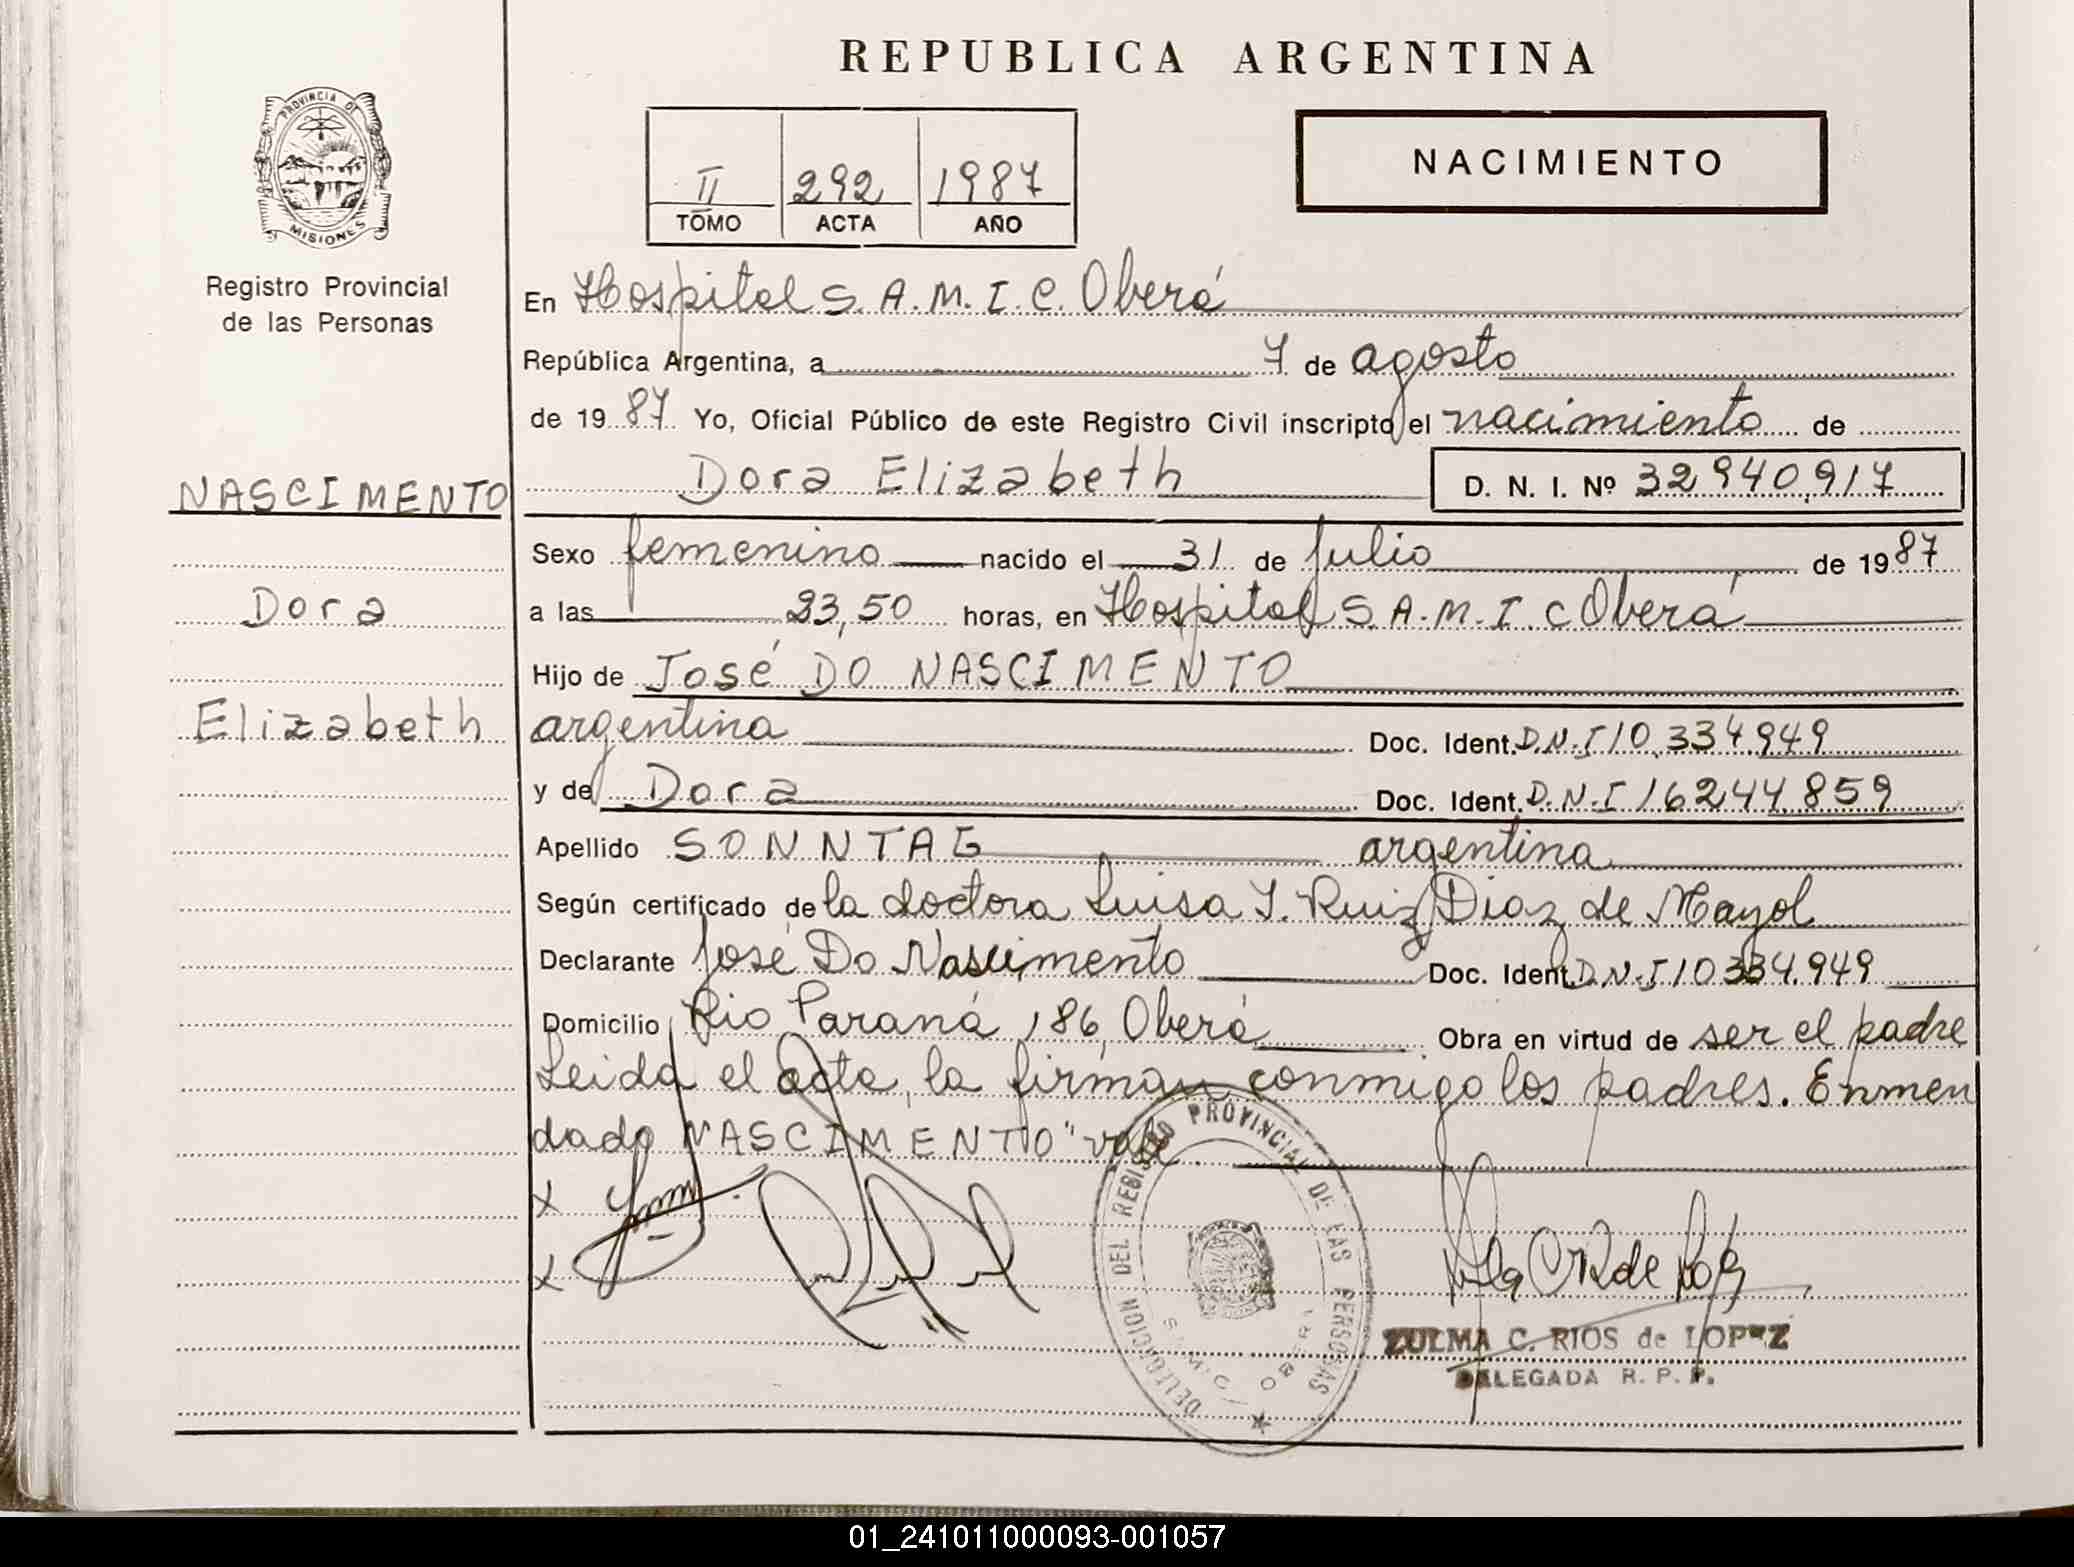 REPUBLICA ARGENTINA
PROVINCIA DE
MISIONES
Registro Provincial
de las Personas
II 292 1987
TOMO ACTA AÑO
NACIMIENTO
En Hospital S.A.M.I.C. Oberá
República Argentina, a 7 de agosto
de 1987 Yo, Oficial Público de este Registro Civil inscripto el nacimiento de
NASCIMENTO
Dora
Elizabeth
Dora Elizabeth D. N. I. Nº 32940,917
Sexo femenino nacido el 31 de Julio de 1987
a las 23,50 horas, en Hospital S.A.M.I.C Oberá
Hijo de José DO NASCIMENTO
argentina Doc. Ident. D.N.I 10.334949
y de Dora Doc. Ident. D.N.I 16244.859
Apellido SONNTAG argentina
Según certificado de la doctora Luisa Y. Ruiz Diaz de Mayol
Declarante José Do Nascimento Doc. Ident. D.N.I 10334.949
Domicilio Rio Paraná 186, Oberá Obra en virtud de ser el padre
Leida el acta, la firman conmigo los padres. Enmen
dado NASCIMENTO" vale.
x
x
DELEGACION DEL REGISTRO PROVINCIAL DE LAS PERSONAS
S.A.M.I.C. OBERA
ZULMA C. RIOS de LOPEZ
DELEGADA R. P. P.
01_241011000093-001057